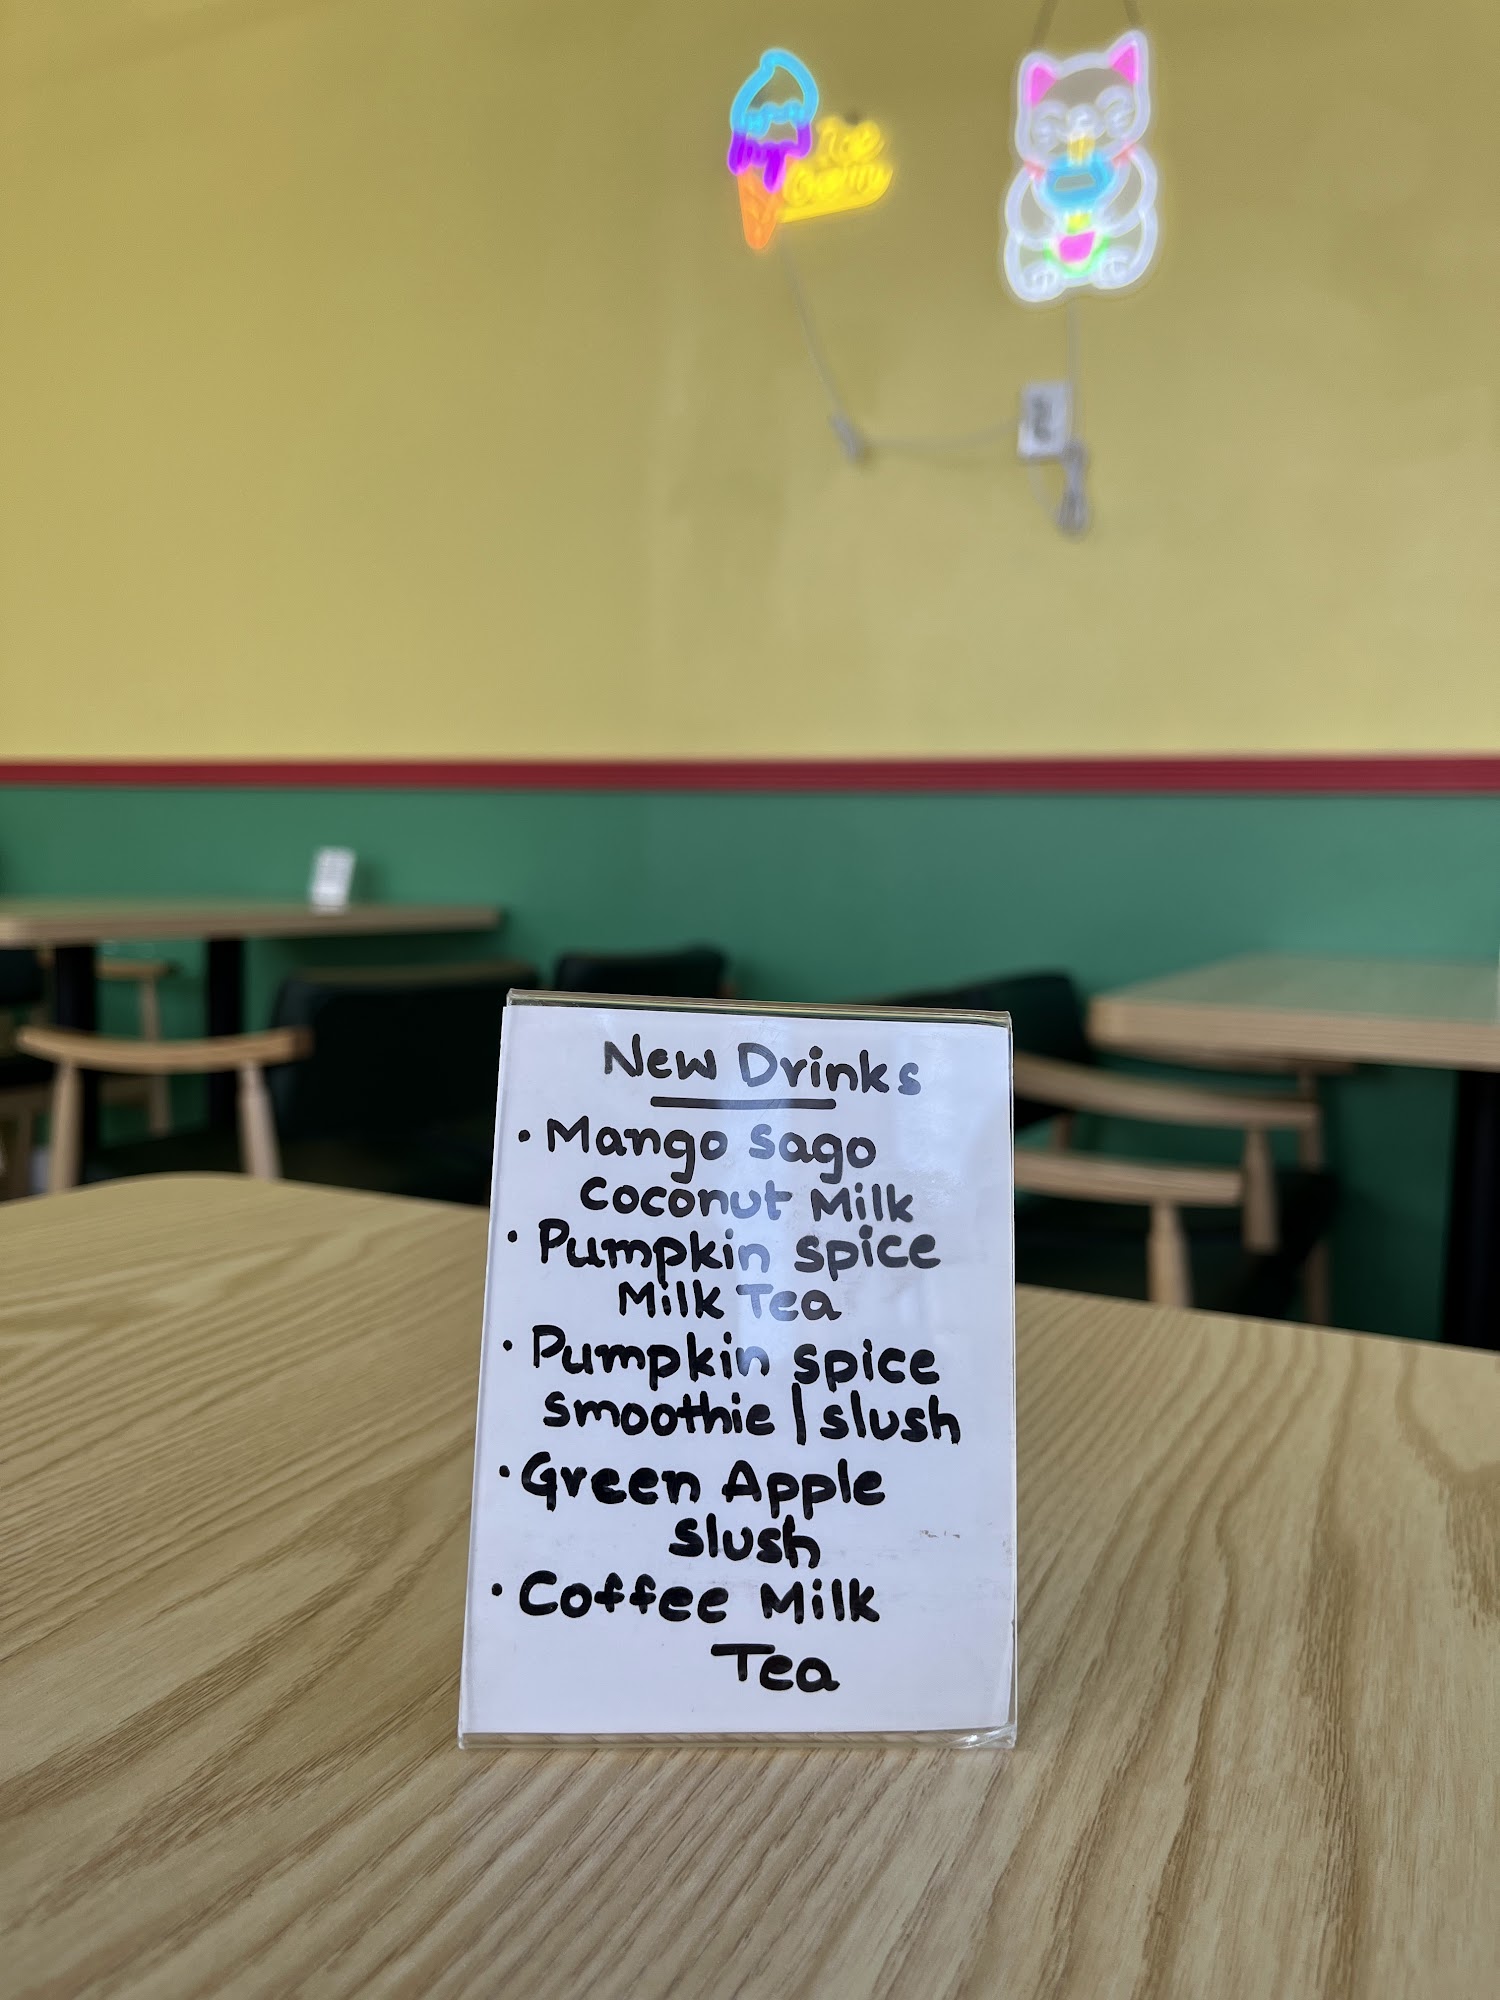 Ice
Cream
New Drinks
• Mango Sago
Coconut Milk
• Pumpkin spice
Milk Tea
• Pumpkin spice
smoothie | slush
• Green Apple
slush
• Coffee Milk
Tea